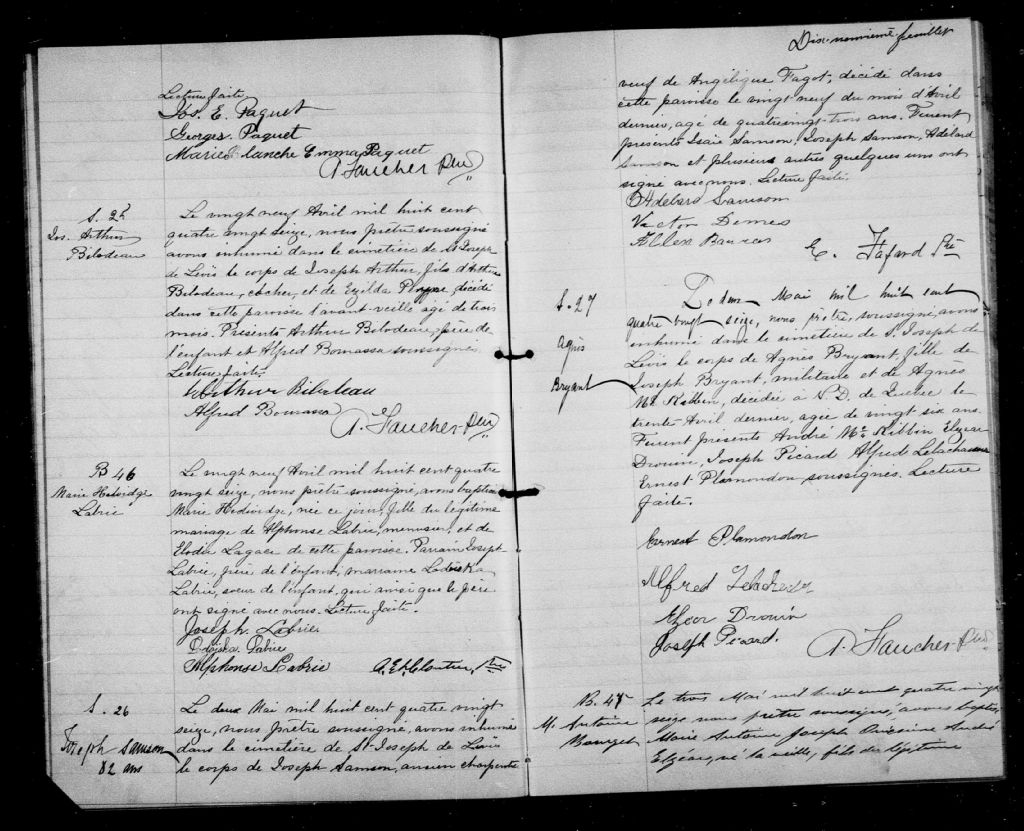 Lecture faite.
Jos. E. Paquet
Georges. Paquet
Marie Blanche Emma Paquet
A. Faucher Ptre
S. 25
Jos. Arthur
Bilodeau
Le vingt neuf Avril mil huit cent
quatre vingt seize, nous prêtre soussigné
avons inhumé dans le cimetière de St Joseph
de Lévis le corps de Joseph Arthur, fils d'Arthur
Bilodeau, cocher, et de Exilda décédé
dans cette paroisse l'avant-veille agé de trois
mois. Présents Arthur Bilodeau, père de
l'enfant et Alfred Bourassa soussignés.
Lecture faite.
Arthur Bilodeau
Alfred Bourassa
A. Faucher Ptre
B 46
Marie Hedwidge
Labrie
Le vingt neuf Avril mil huit cent quatre
vingt seize, nous prêtre soussigné, avons baptisé
Marie Hedwidge, née ce jour, fille du légitime
mariage de Alphonse Labrie, menuisier, et de
Elodie Lagacé de cette paroisse. Parrain Joseph
Labrie, frère de l'enfant, marraine Lodoiska
Labrie, soeur de l'enfant, qui ainsi que le père
ont signé avec nous. Lecture faite.
Joseph Labrie
Labrie
Alphonse Labrie
Ptre
S. 26
Joseph Samson
82 ans
Le deux Mai mil huit cent quatre vingt
seize, nous prêtre soussigné, avons inhumé
dans le cimetière de St-Joseph de Lévis
le corps de Joseph Samson, ancien charpentier
Dix-neuvième feuillet
veuf de Angélique Fagot, décédé dans
cette paroisse le vingt neuf du mois d'Avril
dernier, agé de quatrevingt-trois ans. Furent
présents Isaïe Samson, Joseph Samson, Adelard
Samson et plusieurs autres quelques uns ont
signé avec nous. Lecture faite.
Adelard Samson
Victor Demers
E. Fafard Ptre
S. 27
Agnès
Bryant
Le deux Mai mil huit cent
quatre vingt seize, nous prêtre, soussigné, avons
inhumé dans le cimetière de St. Joseph de
Lévis le corps de Agnès Bryant, fille de
Joseph Bryant, militaire et de Agnès
Mc Kibbin, décédée à N. D. de Québec le
trente Avril dernier, agée de vingt six ans.
Furent présents André Mc Kibbin Elzéar
Drouin, Joseph Picard Alfred
Ernest Plamondon soussignés. Lecture
faite.
Ernest Plamondon
Alfred
Drouin
Joseph Picard.
A. Faucher Ptre
B. 47
M. Antoine
Le trois Mai mil huit cent quatre vingt
seize nous prêtre soussigné, avons baptisé
Marie Antoine Joseph André
Elzéar, né la veille, fils du légitime